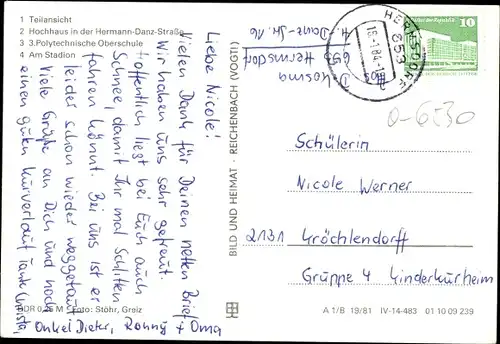 1 Teilansicht
2 Hochhaus in der Hermann-Danz-Straße
3 3. Polytechnische Oberschule
4 Am Stadion
Liebe Nicole!
Vielen Dank für Deinen netten Brief.
Wir haben uns sehr gefreut.
Hoffentlich liegt bei Euch auch
Schnee, damit Ihr mal Schlitten
fahren könnt. Bei uns ist er
leider schon wieder weggetaut.
Viele Grüße an Dich und noch
einen guten Kurverlauf Tante Christa,
Onkel Dieter, Ronny + Oma
DDR 0,25 M Foto: Stöhr, Greiz
BILD UND HEIMAT · REICHENBACH (VOGTL)
D.
653 Hermsdorf
H.-Danz-Str. 16
HERMSDORF
653
-1.84-1
10
O-6530
Schülerin
Nicole Werner
2131 Kröchlendorff
Gruppe 4 Kinderkurheim
A 1/B 19/81 IV-14-483 01 10 09 239